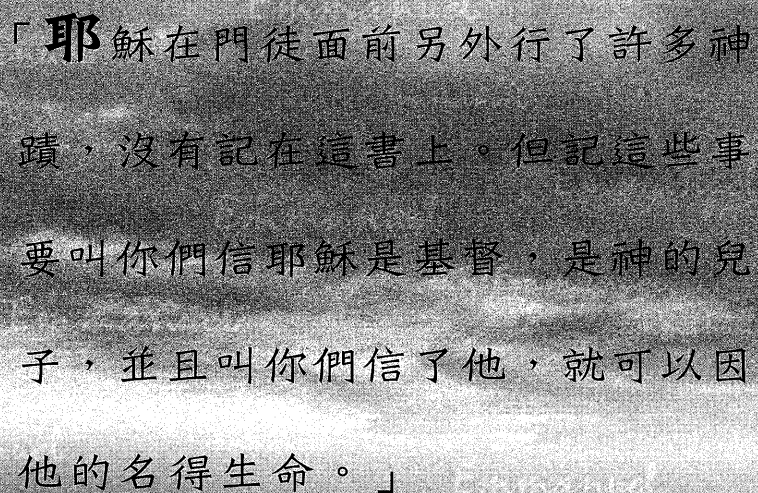 「耶穌在門徒面前另外行了許多神
蹟，沒有記在這書上。但記這些事
要叫你們信耶穌是基督，是神的兒
子，並且叫你們信了他，就可以因
他的名得生命。」